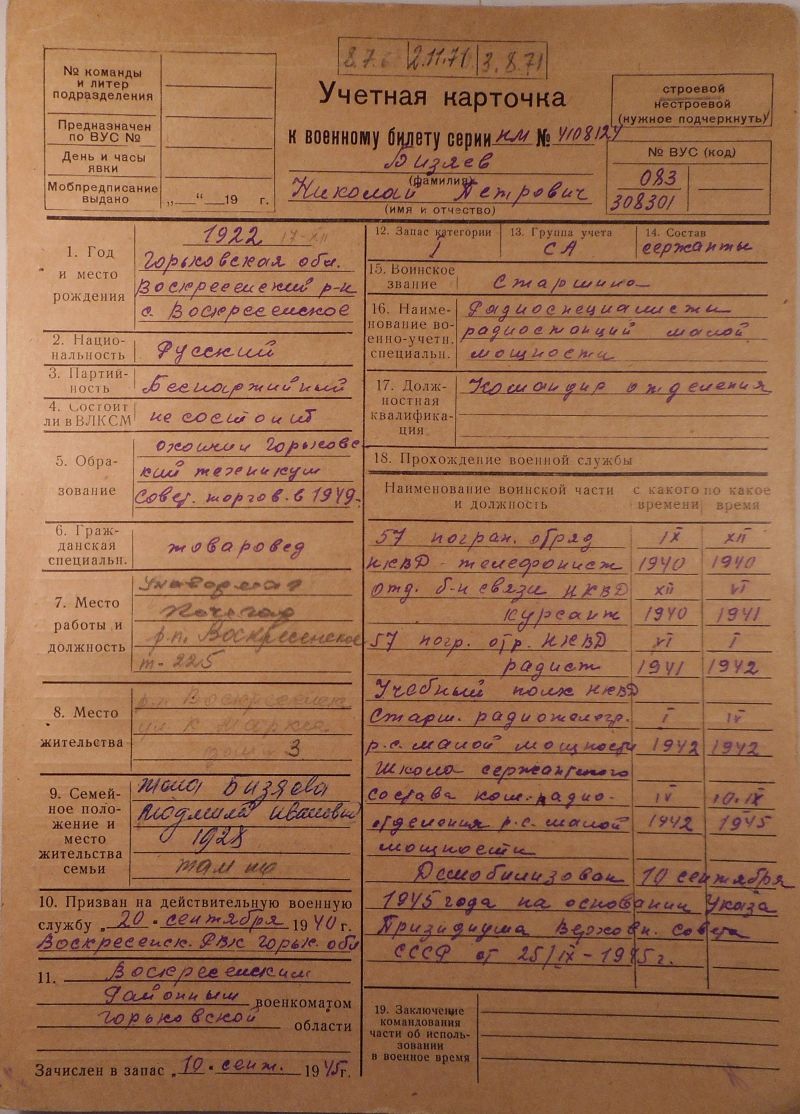 8.7.6 2.11.71 3.8.71
№ команды
и литер
подразделения
Предназначен
по ВУС №
День и часы
явки
Мобпредписание
выдано
„ “ 19 г.
Учетная карточка
к военному билету серии НМ № 4108124
Бизяев
(фамилия)
Николай Петрович
(имя и отчество)
строевой
нестроевой
(нужное подчеркнуть)
№ ВУС (код)
083
308301
1. Год
и место
рождения
1922 17-XII
Горьковская обл.
Воскресенский р-н
с. Воскресенское
2. Нацио-
нальность
Русский
3. Партий-
ность
Беспартийный
4. Состоит
ли в ВЛКСМ
не состоит
5. Обра-
зование
окончил Горьков
ский техникум
Совет. торгов. в 1949
6. Граж-
данская
специальн.
товаровед
7. Место
работы и
должность
р.п. Воскресенское
т-225
8. Место
жительства
р.п. Воскресенск
ул. К Маркса
дом 3
9. Семей-
ное поло-
жение и
место
жительства
семьи
Жена Бизяева
Людмила Ивановн
1928
там же
10. Призван на действительную военную
службу „20“ сентября 1940 г.
Воскресенск. РВК Горьк. обл
11. Воскресенским
Районным военкоматом
Горьковской области
Зачислен в запас „10“ сент. 1945 г.
12. Запас категории
1
13. Группа учета
СА
14. Состав
сержанты
15. Воинское
звание
Старшина
16. Наиме-
нование во-
енно-учетн.
специальн.
Радиоспециалисты
радиостанций малой
мощности
17. Долж-
ностная
квалифика-
ция
Командир отделения
18. Прохождение военной службы
Наименование воинской части
и должность
с какого
времени
по какое
время
57 погран. отряд IX XII
НКВД - телефонист 1940 1940
Отд. б-н связи НКВД XII VI
курсант 1940 1941
57 погр. отр. НКВД VI I
радист 1941 1942
Учебный полк НКВД
Старш. радиотелегр. I IV
р.с. малой мощности 1942 1942
Школа сержантского
состава ком. радио- IV 10.IX
отделения р.с. малой 1942 1945
мощности
Демобилизован 10 сентября
1945 года на основании Указа
Призидиума Верховн. Совета
СССР от 25/IX-1945г.
19. Заключение
командования
части об исполь-
зовании
в военное время